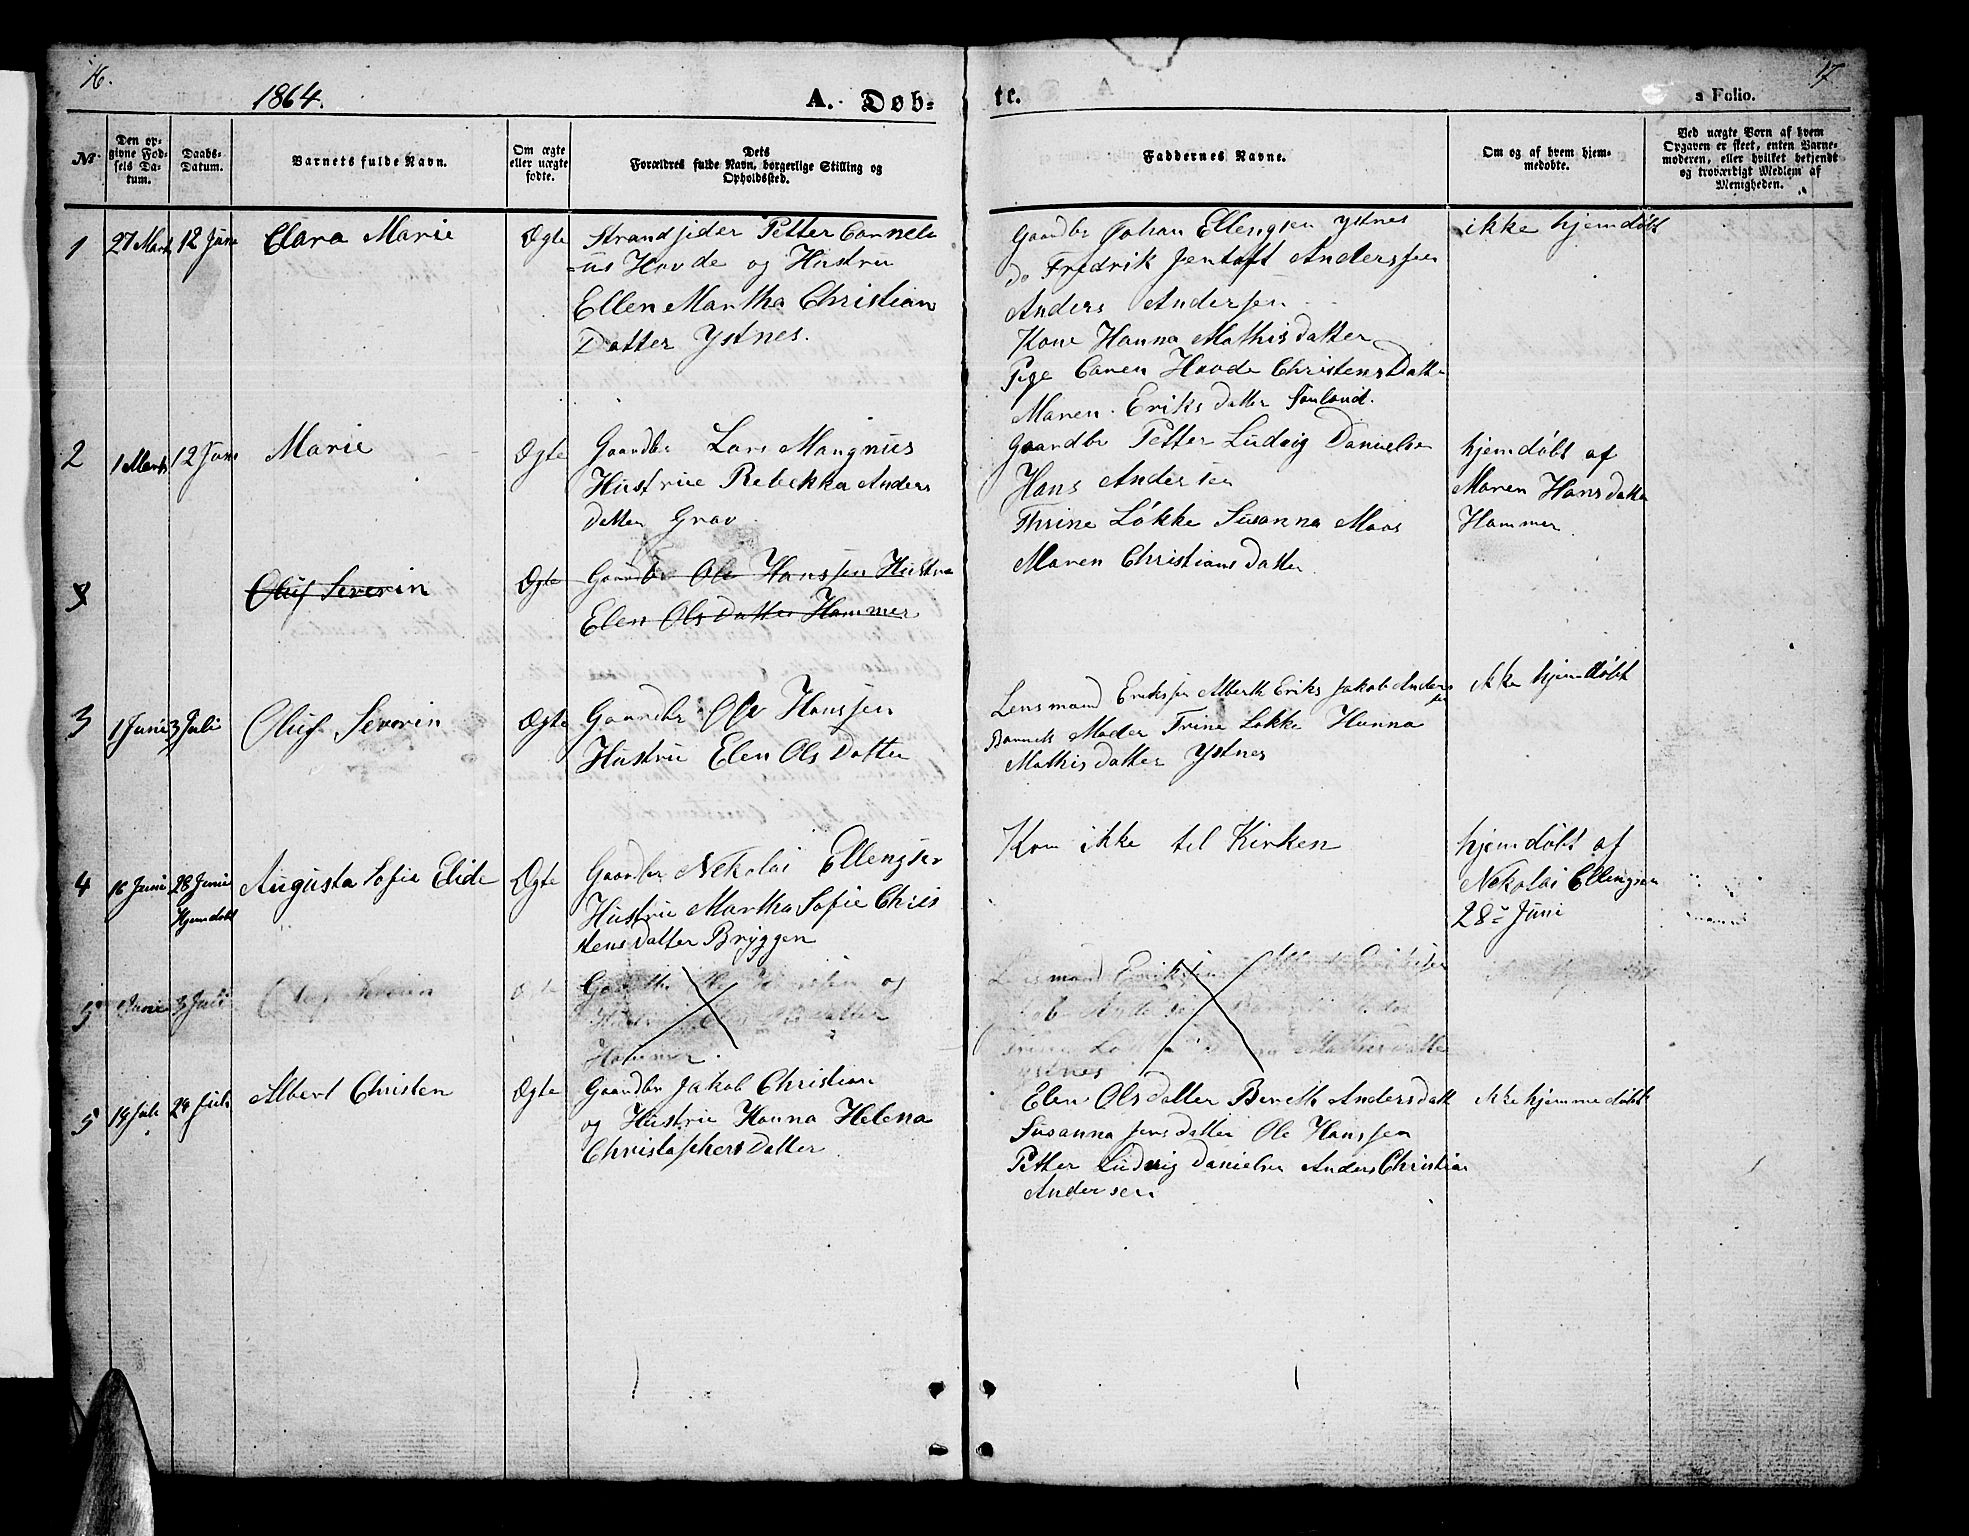 16.
1864.
A. Døb-
te.
a Folio.
17
№
Den op-
givne Fød-
sels Da-
tum.
Daabs-
Datum.
Barnets fulde Navn.
Om ægte
eller uægte
født.
Dets
Forældres fulde Navn, borgerlige Stilling og
Opholdssted.
Faddernes Navne.
Om og af hvem hjem-
medøbte.
Ved uægte Born af hvem
Opgaven er skeet, enten Barne-
moderen, eller hvilket bekjendt
og troværdigt Medlem af
Menigheden.
1
27 Marts
12 Juni
Clara Marie
Ægte
Strandsider Petter Corneli
-us Hovde og Hustru
Ellen Martha Christian
Datter Ystnes.
Gaardbr Johan Ellengsen Ystnes
do Fredrik Jentoft Anderssen
Anders Andersen
Kone Hanna Mathisdatter
Pige Caren Hovde ChristensDatte
Maren Eriksdatter
ikke hjemdøbt
2
1 Marts
12 Juni
Marie
Ægte
Gaardbr Lars Mangnus
Hustrue Rebekka Anders
datter Grav
Gaardbr Petter Ludvig Danielse
Hans Andersen
Thrine Løkke Susanna Maas
Maren Christiansdatter
hjemdøbt af
Maren Hansdatte
Hammer
3
Oluf Severin
Ægte
Gaardbr Ole Hanssen Hustru
Elen OlsDatter Hammer
3
1 Juni
3 Juli
Oluf Severin
Ægte
Gaardbr Ole Hanssen
Hustrue Elen OlsDatter
Lensmand Erikssen Alberth Eriks Jakob Anders
sen
Barnets Moder Trine Løkke Hanna
Mathisdatter Ystnes
ikke hjemdøbt
4
16 Juni
28 Junie
Hjemdøbt
Augusta Sofie Elide
Ægte
Gaardbr Nekolai Ellengsen
Hustrue Martha Sofie Chris
tensDatter Bryggen
Kom ikke til Kirken
hjemdøbt af
Nekolai Ellengsen
28de Juni
5
Junie
3 Juli
Oluf Severin
Gaardbr Ole Hanssen og
Hustrue Elen Olsdatter
Hammer.
Lensmand Erikssen
Trine Løkke Hanna Mathisdatte
Ystnes
5
14 Juli
24 Juli
Albert Christen
Ægte
Gaardbr Jakob Christian
og Hustrue Hanna Helena
Christophersdatter
Elen OlsDatter Bereth Andersdatt
Susanna Jensdatter Ole Hanssen
Petter Ludvig Danielsen Anders Christian
Andersen
ikke hjemmedøbt